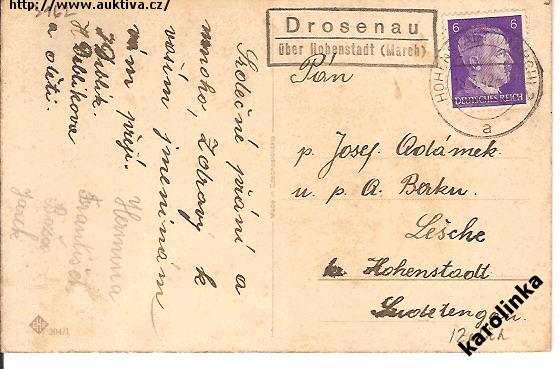 http://www.auktiva.cz/
Drosenau
über Hohenstadt (March)
6 6
DEUTSCHES REICH
HOHENSTADT
a
Pán
p. Josef Adámek.
u. p. A. Berku.
Lešche
Hohenstadt
Sudetengau.
Srdečné přání a
mnoho zdraví k
vašim jmeninám
vám přejí.
Dublik.
Dublikova
a děti.
Hermina
František
Made in Czechoslovakia
304/1
karolinka